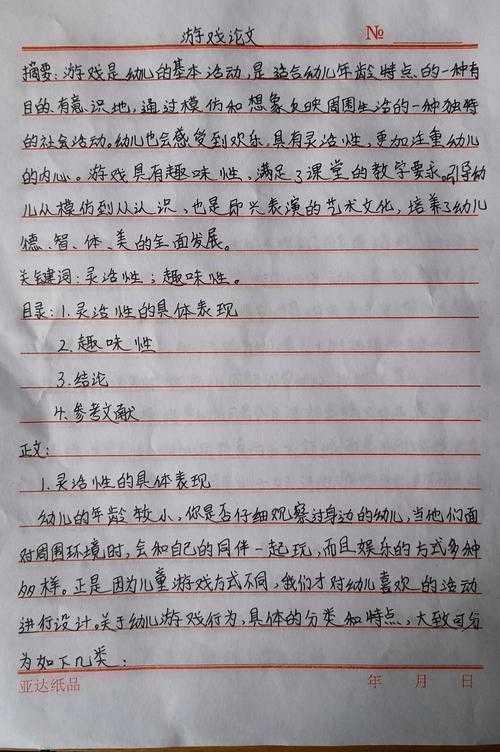 游戏论文 №
摘要：游戏是幼儿的基本活动，是适合幼儿年龄特点的一种有
目的有意识地，通过模仿和想象反映周围生活的一种独特
的社会活动。幼儿也会感受到欢乐，具有灵活性，更加注重幼儿
的内心。游戏具有趣味性，满足了课堂的教学要求。引导幼
儿从模仿到从认识，也是即兴表演的艺术文化，培养了幼儿
德、智、体、美的全面发展。
关键词：灵活性；趣味性。
目录：1.灵活性的具体表现
2.趣味性
3.结论
4.参考文献
正文：
1.灵活性的具体表现
幼儿的年龄较小，你是否仔细观察过身边的幼儿，当他们面
对周围环境时，会和自己的同伴一起玩，而且娱乐的方式多种
多样。正是因为儿童游戏方式不同，我们才对幼儿喜欢的活动
进行设计。关于幼儿游戏行为，具体的分类和特点，大致可分
为如下几类：
亚达纸品 年 月 日